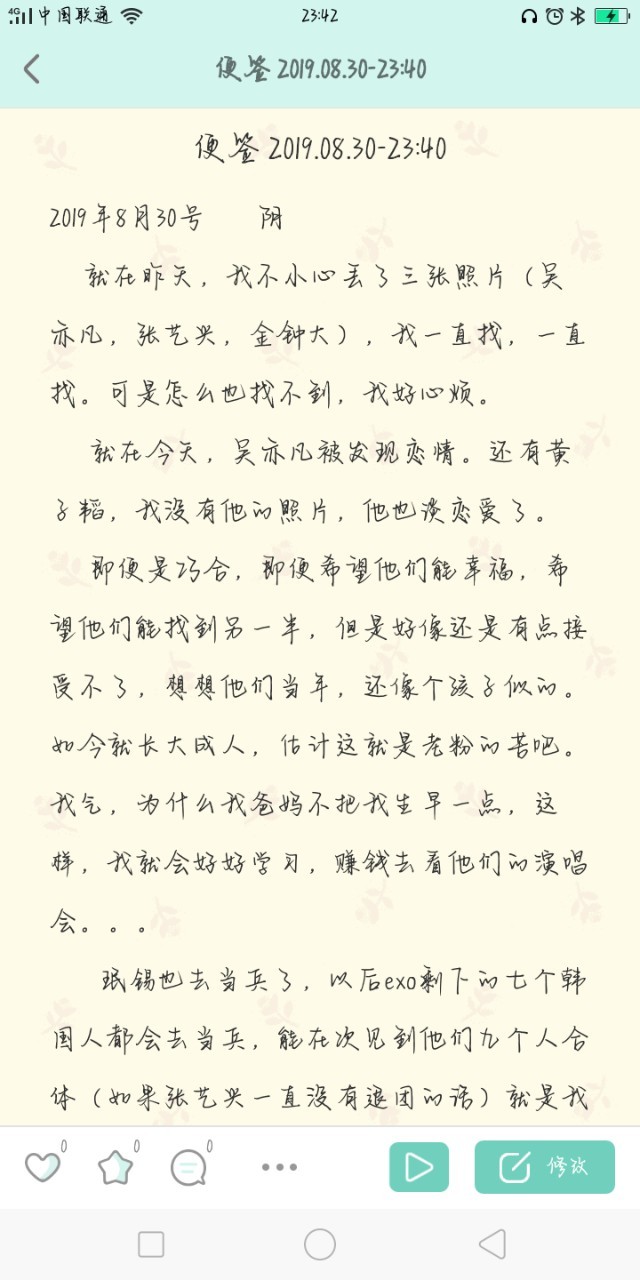 4G 中国联通 23:42
便签 2019.08.30-23:40
便签 2019.08.30-23:40
2019年8月30号 阴
就在昨天，我不小心丢了三张照片（吴
亦凡，张艺兴，金钟大），我一直找，一直
找。可是怎么也找不到，我好心烦。
就在今天，吴亦凡被发现恋情。还有黄
子韬，我没有他的照片，他也谈恋爱了。
即便是巧合，即便希望他们能幸福，希
望他们能找到另一半，但是好像还是有点接
受不了，想想他们当年，还像个孩子似的。
如今就长大成人，估计这就是老粉的苦吧。
我气，为什么我爸妈不把我生早一点，这
样，我就会好好学习，赚钱去看他们的演唱
会。。。
珉锡也去当兵了，以后exo剩下的七个韩
国人都会去当兵，能在次见到他们九个人合
体（如果张艺兴一直没有退团的话）就是我
0 0 0 修改